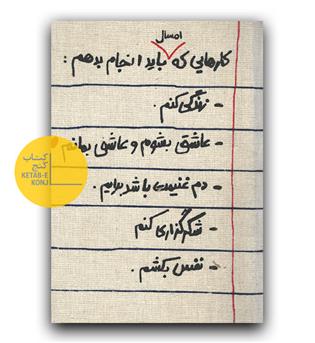 امسال
کارهایی که باید انجام بدهم :
- زندگی کنم.
- عاشق بشوم و عاشق بمانم
- دم غنیمت باشد برایم.
- شکرگزاری کنم
- نفس بکشم.
کتاب
کنج
KETAB-E
KONJ